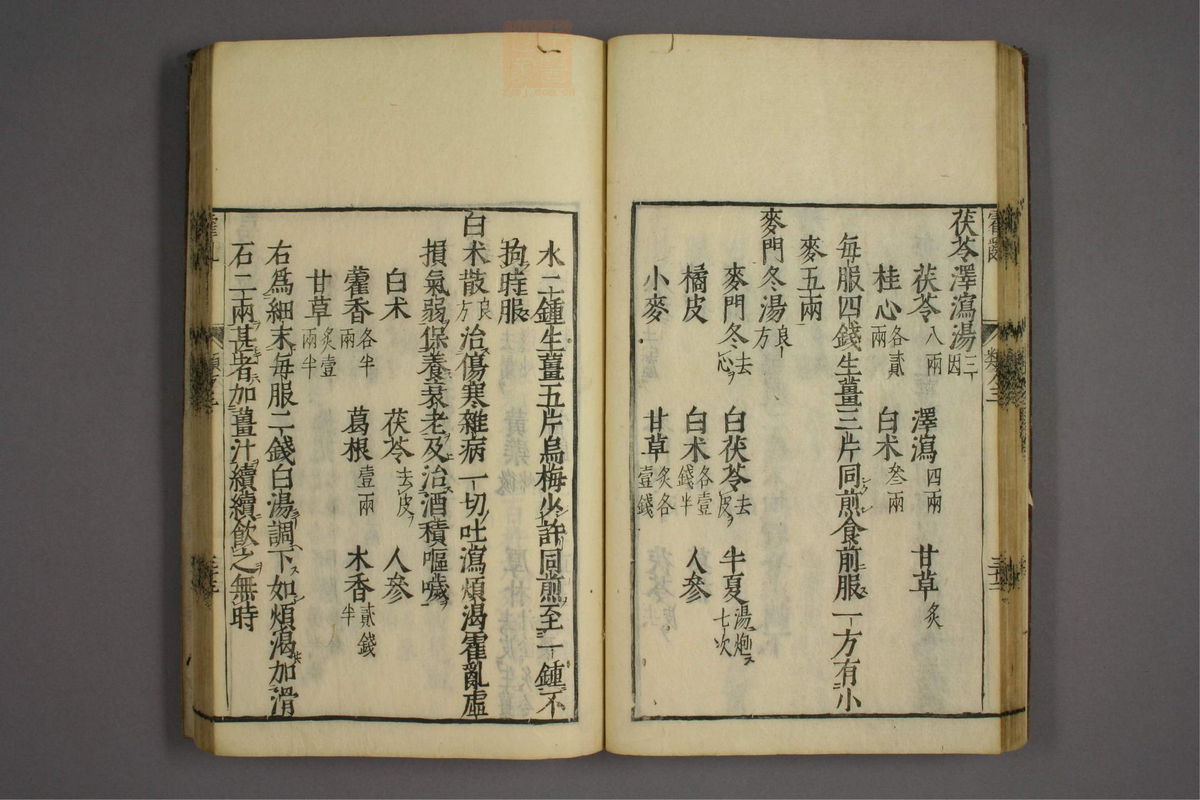 茯苓澤瀉湯三因
茯苓八兩 澤瀉四兩 甘草炙
桂心各貳兩 白朮叁兩
毎服四錢生薑三片同煎食前服一方有小
麥五兩
麥門冬湯良方
麥門冬去心 白茯苓去皮 半夏湯炮七次
橘皮 白朮各壹錢半 人參
小麥 甘草炙各壹錢
水二鍾生薑五片烏梅少許同煎至一鍾不
拘時服
白朮散良方治傷寒雜病一切吐瀉煩渴霍亂虛
損氣弱保養衰老及治酒積嘔噦
白朮 茯苓去皮 人參
藿香各半兩 葛根壹兩 木香貳錢半
甘草炙壹兩半
右爲細末毎服二錢白湯調下如煩渴加滑
石二兩甚者加薑汁續續飲之無時